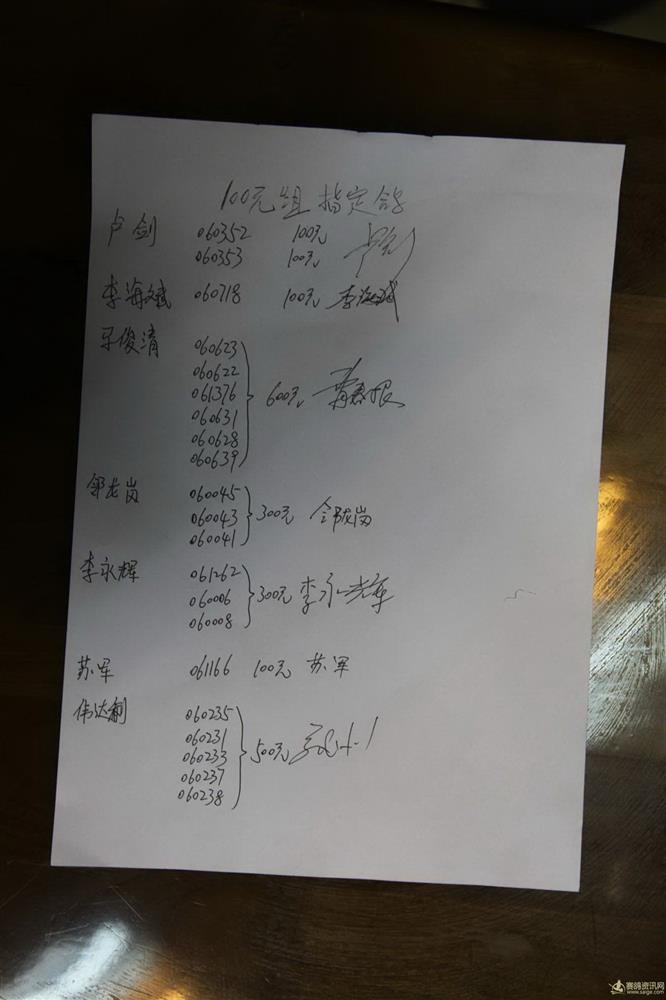 100元组 指定鸽
卢剑 060352 100元
060353 100元
李海斌 060718 100元 李海斌
060623
060622
061376 600元
060631
060628
060639
邹龙岗 060045
060043 300元 邹龙岗
060041
李永辉 061262
060006 300元 李永辉
060008
苏军 061166 100元 苏军
伟达 060235
060231
060233 500元
060237
060238
赛鸽资讯网
www.saige.com